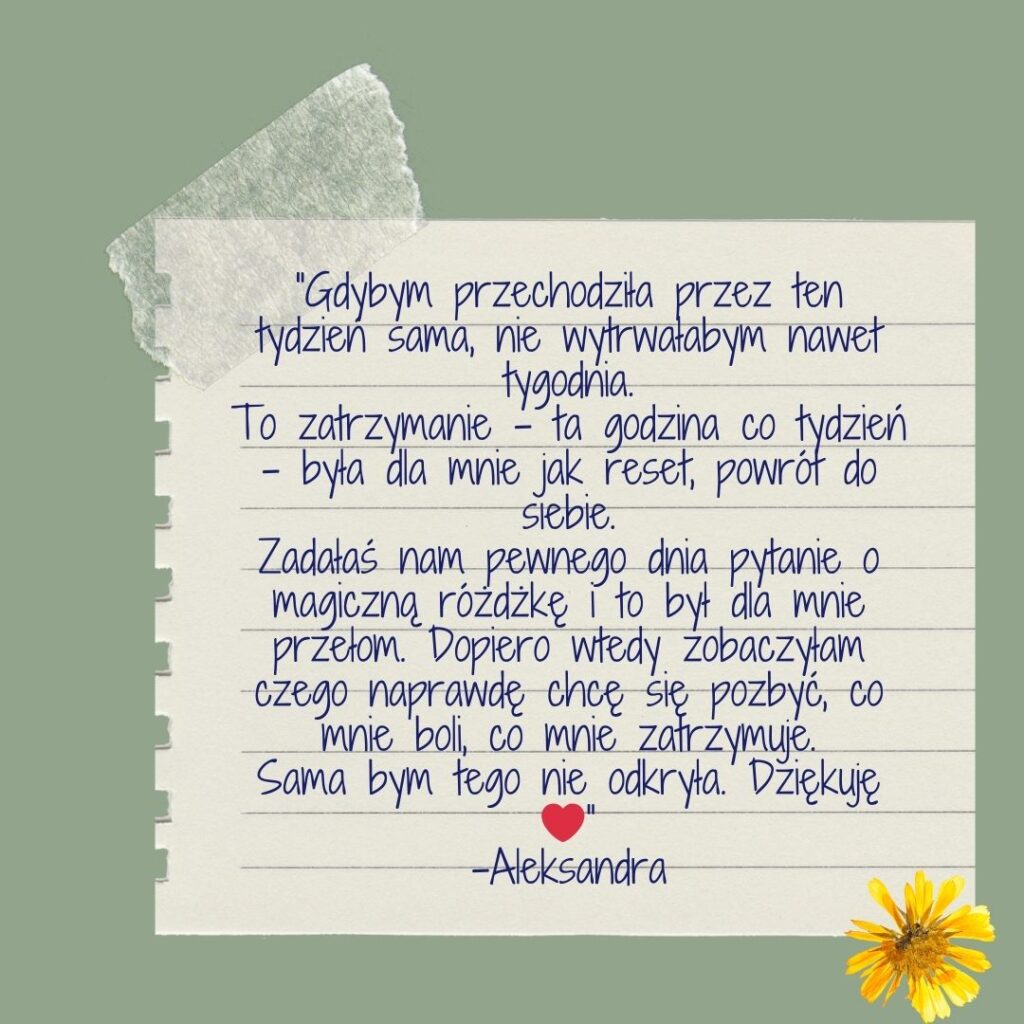 "Gdybym przechodziła przez ten
tydzień sama, nie wytrwałabym nawet
tygodnia.
To zatrzymanie - ta godzina co tydzień
- była dla mnie jak reset, powrót do
siebie.
Zadałaś nam pewnego dnia pytanie o
magiczną różdżkę i to był dla mnie
przełom. Dopiero wtedy zobaczyłam
czego naprawdę chcę się pozbyć, co
mnie boli, co mnie zatrzymuje.
Sama bym tego nie odkryła. Dziękuję
❤️"
-Aleksandra